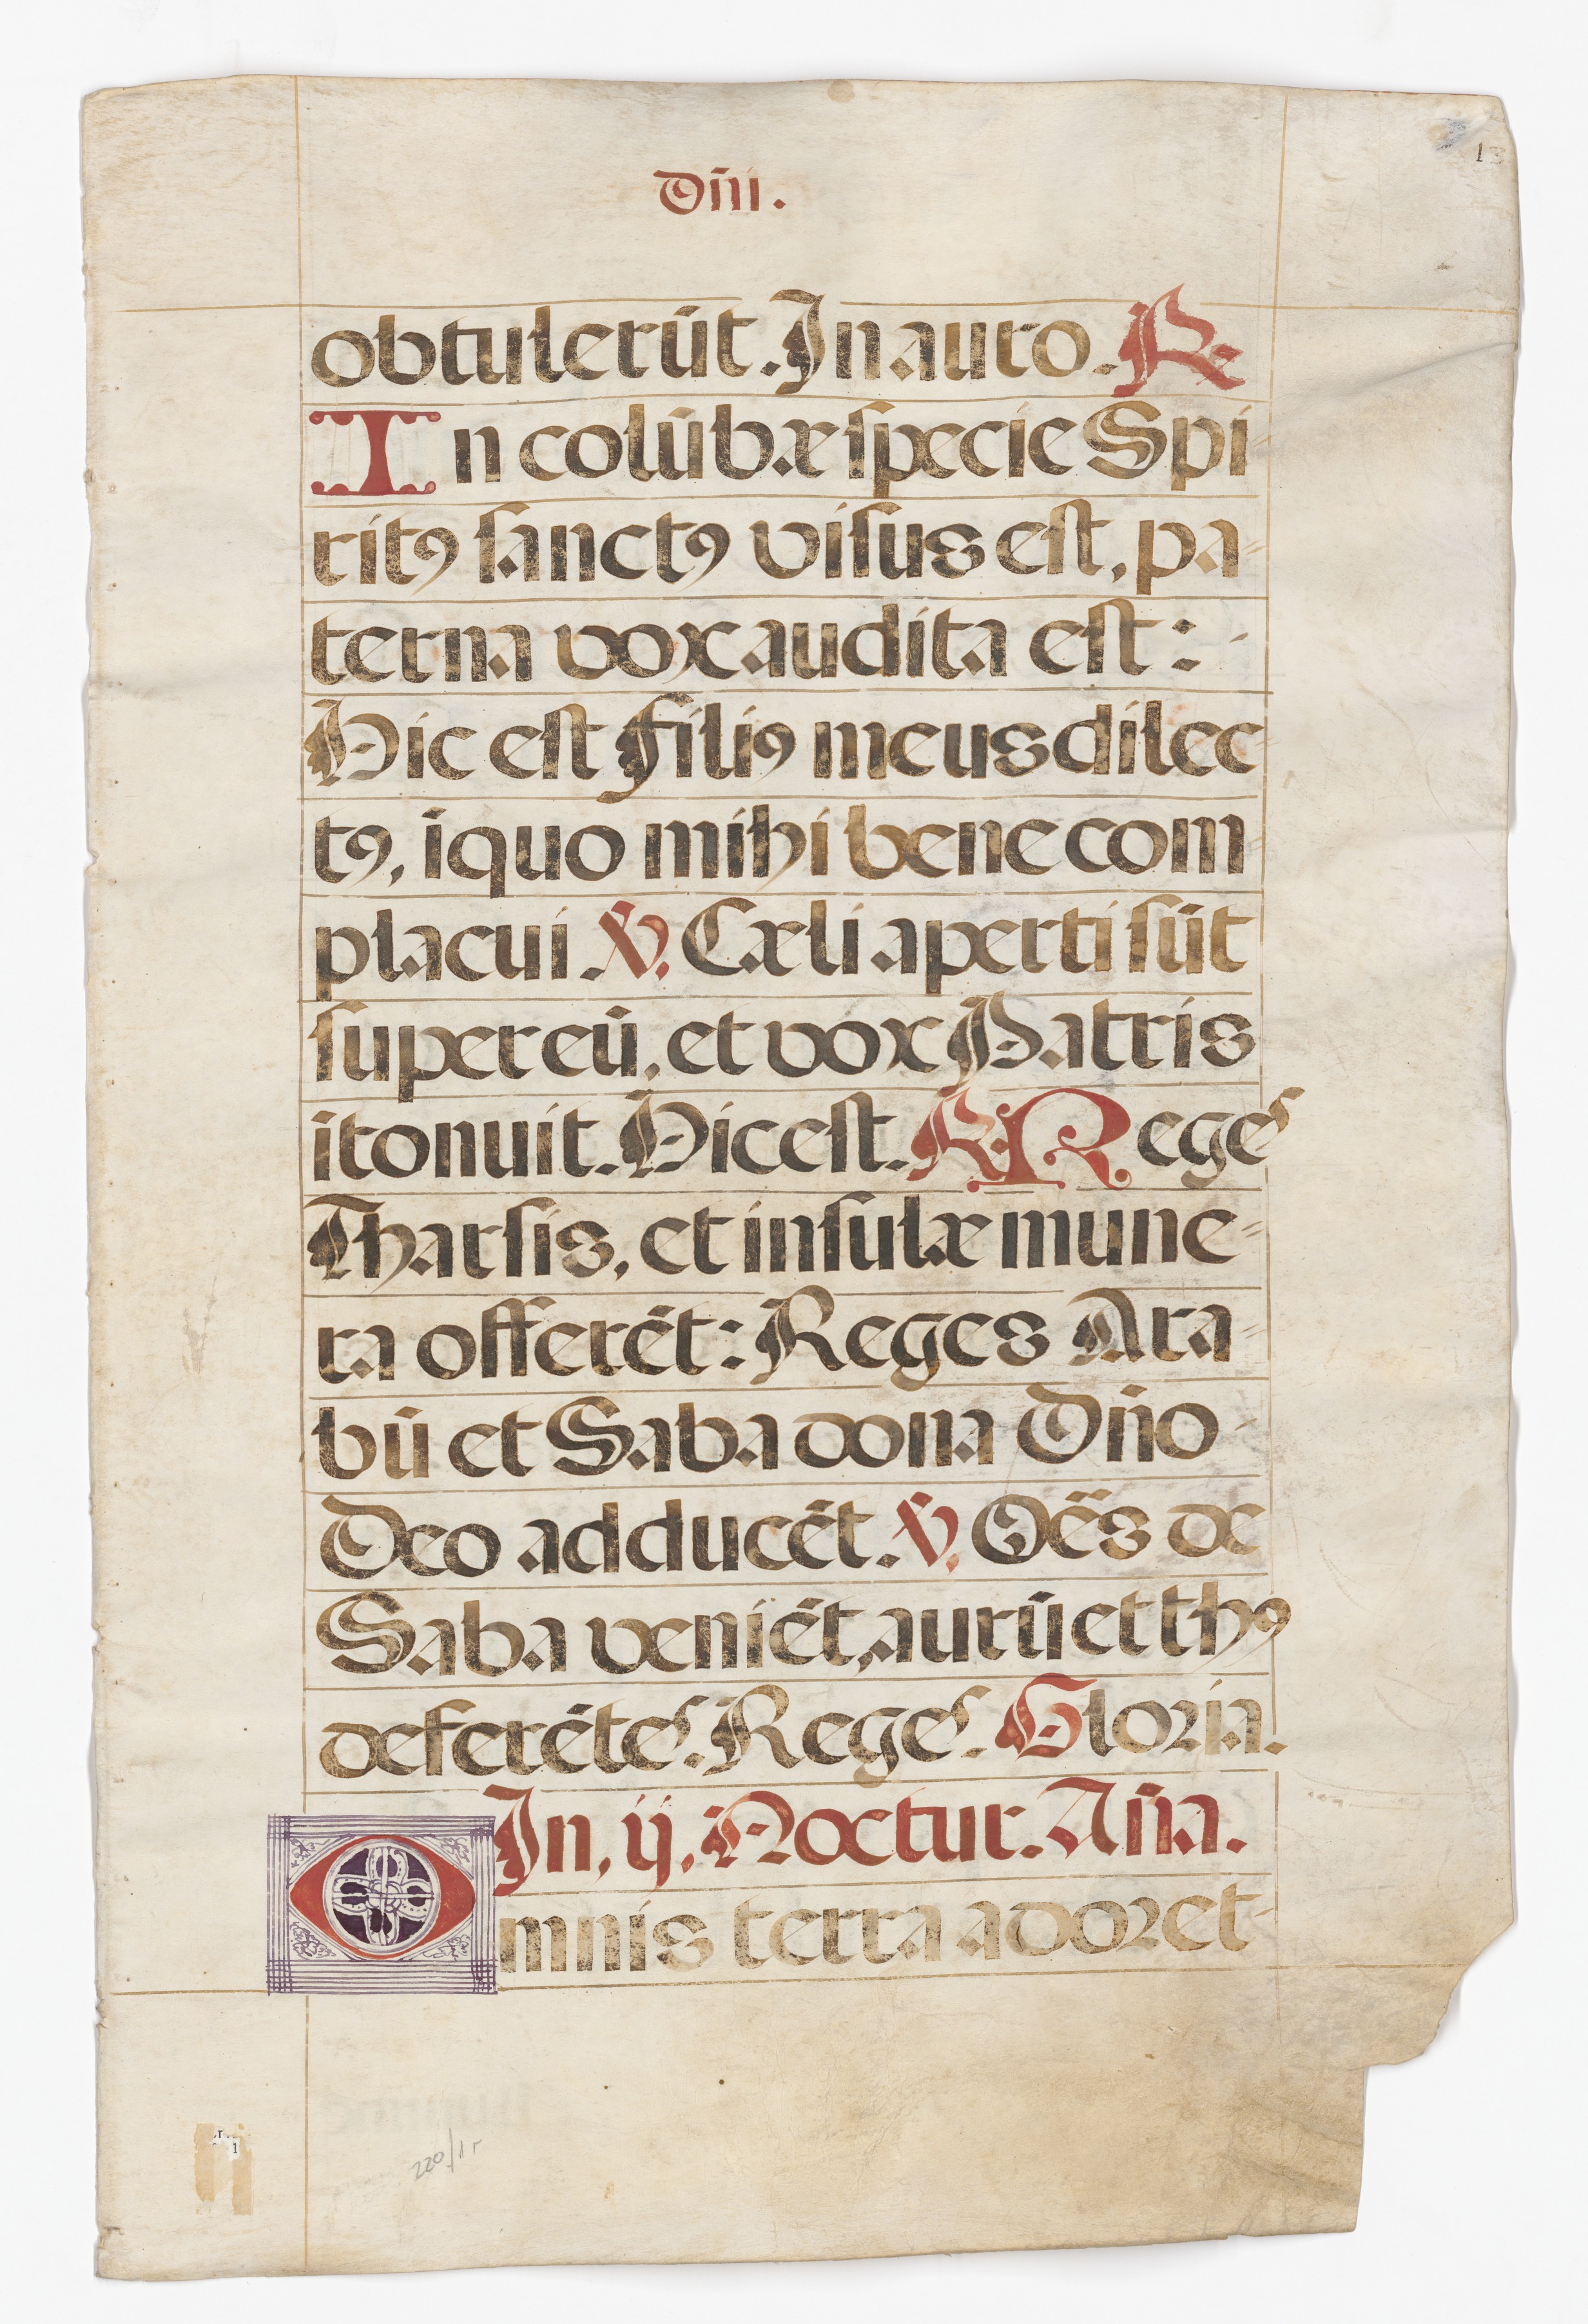 Dñi.
13
obtulerūt. In auro. ℟.
In colūbæ specie Spi-
ritꝯ sanctꝯ visus est, pa-
terna vox audita est:
Hic est filiꝯ meus dilec-
tꝯ, ī quo mihi bene com-
placui. ℣. Cæli aperti sūt
super eū, et vox Patris
ītonuit. Hic est. ℟. Reges
Tharsis, et insulæ mune-
ra offerēt: Reges Ara-
bū et Saba dona Dño
Deo adducēt. ℣. Oēs de
Saba veniēt, aurū et thꝯ
deferētes. Reges. Gloria.
In. ij. Noctur. Aña.
Omnis terra adoret
220/1r